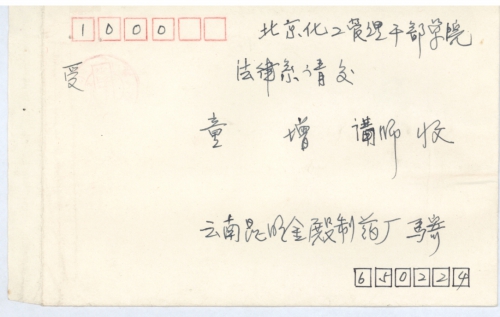 1000
北京化工管理干部学院
受
法律系请交
童增 讲师 收
云南昆明金殿制药厂 马
650224